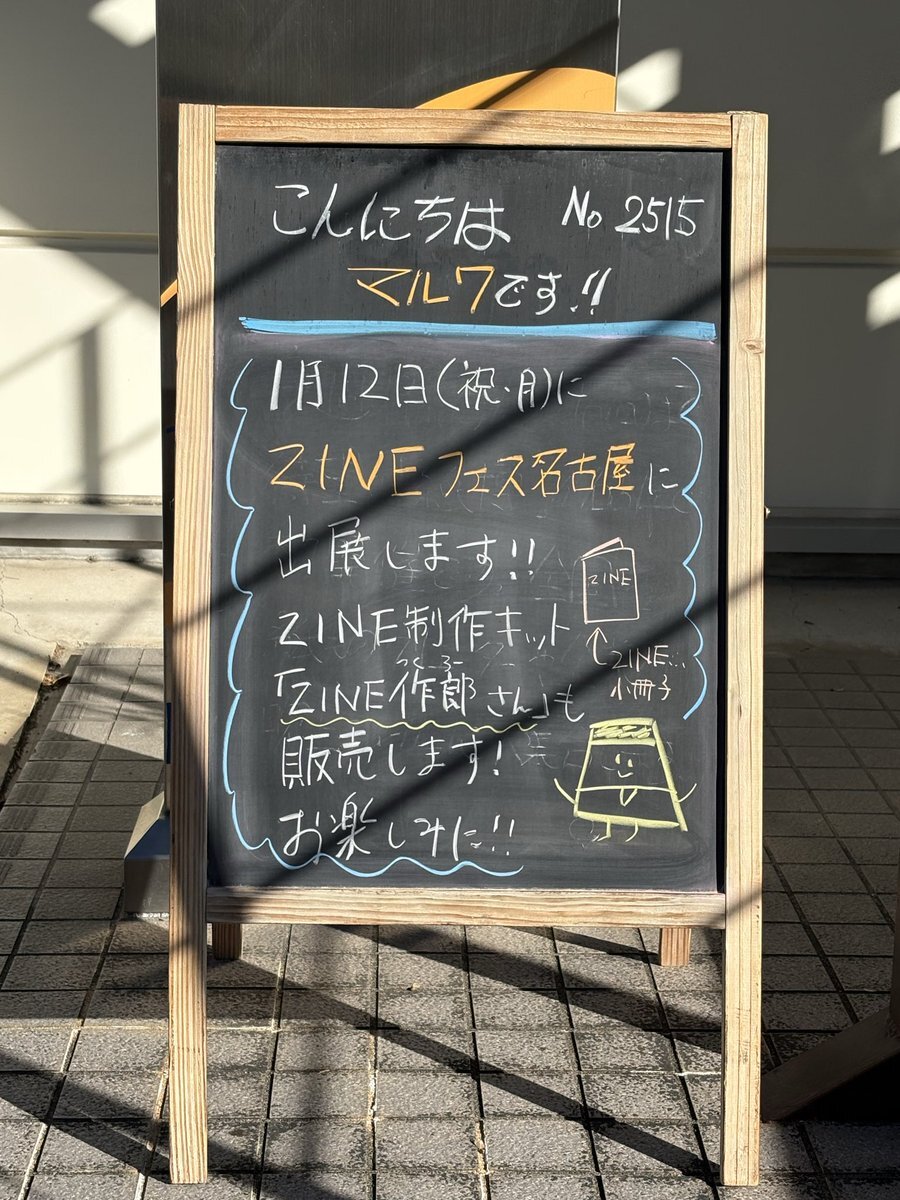 こんにちは No 2515
マルワです!!
1月12日(祝・月)に
ZINEフェス名古屋に
出展します!!
ZINE制作キット
つくろー
「ZINE作郎さん」も
販売します!
お楽しみに!!
ZINE
ZINE…
小冊子